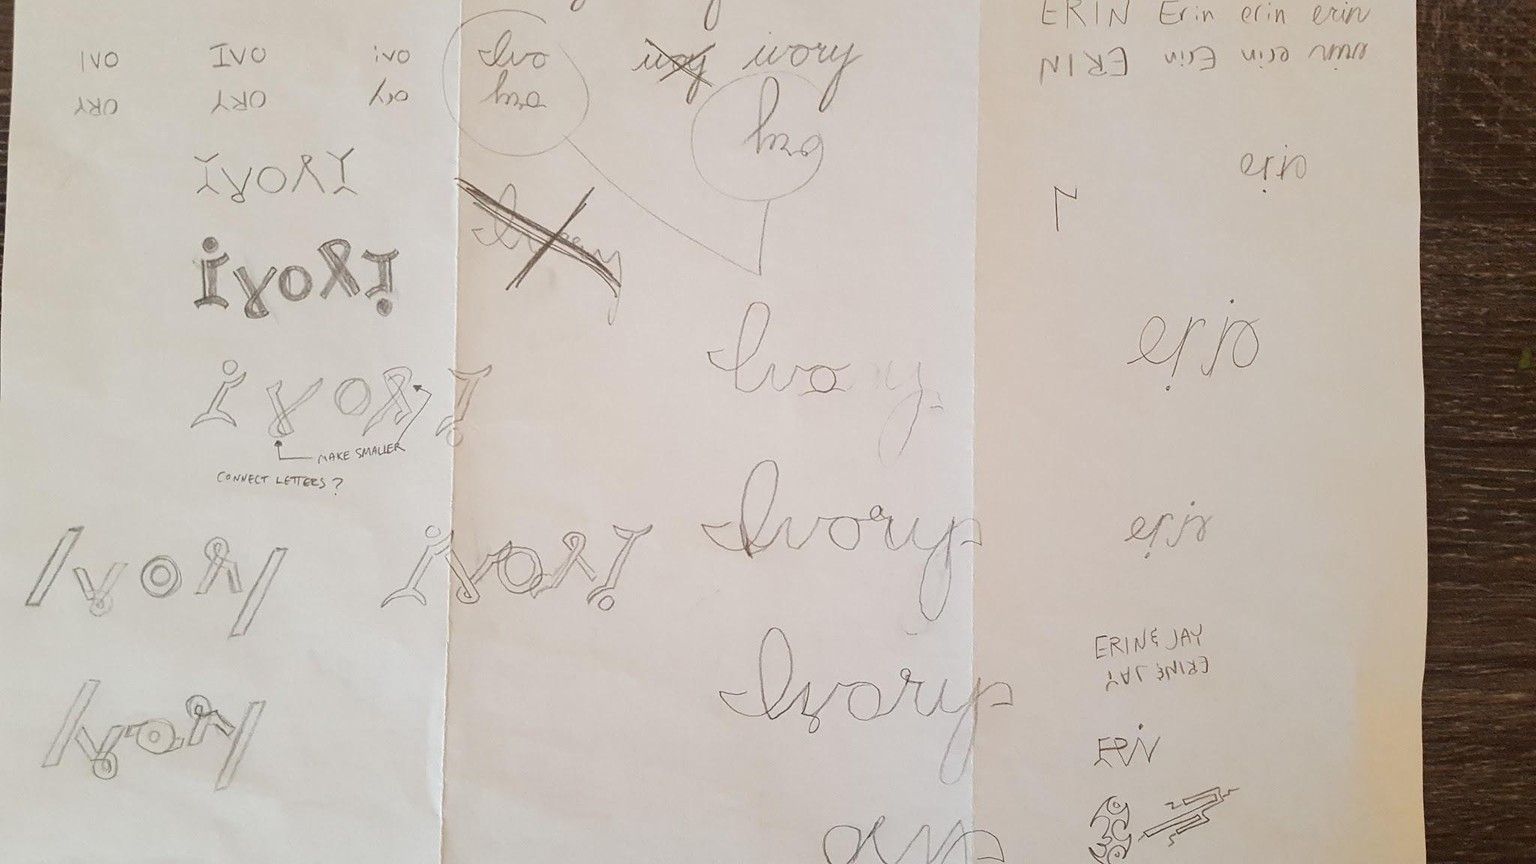 IVO IVO ivo Ivo ivory
ORY ORY ory ory ory
IVORY
IVORY
IVORY
MAKE SMALLER
CONNECT LETTERS?
IVORY
IVORY
IVORY
Ivo
Ivory
Ivory
ERIN Erin erin erin
ERIN Erin erin erin
erin
erin
erin
ERIN & JAY
ERIN & JAY
ERIN